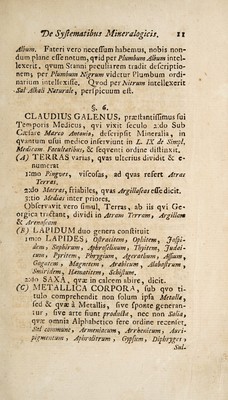 De Systematibus Mineralogicis. 11
Album. Fateri vero necessum habemus, nobis non-
dum plane esse notum, qvid per Plumbum Album intel-
lexerit, qvum Stanni peculiarem tradit descriptio-
nem; per Plumbum Nigrum videtur Plumbum ordi-
narium intellexisse. Qvod per Nitrum intellexerit
Sal Alkali Naturale, perspicuum est.
§. 6.
CLAUDIUS GALENUS, præstantissimus sui
Temporis Medicus, qui vixit seculo 2:do Sub
Cæsare Marco Antonio, descripsit Mineralia,
quantum usui medico inserviunt in L. IX de Simpl.
Medicam Facultatibus, & seqventi ordine distinxit.
(A) TERRAS varias, qvas ulterius dividit & e-
numerat
1:mo Pingves, viscosas, ad qvas refert Atras
Terras.
2:do Macras, friabiles, qvas Argillosas esse dicit.
3:tio Medias inter priores.
Observavit vero simul, Terras, ab iis qvi Ge-
orgica tractant, dividi in Atram Terram, Argillam
& Arenosam.
(B) LAPIDUM duo genera constituit
1:mo LAPIDES, Ostraciten, Ophitem, Jaspi-
dem, Saphirum, Aphroselinum, Thyitem, Judai-
cum, Pyritem, Phrygium, Ageratbum, Assium
Gagatem, Magnetem, Arabicum, Alabastrum,
Smiridem, Hæmatitem, Schistum.
2:do SAXA, qvæ in calcem abire, dicit.
(C) METALLICA CORPORA, sub qvo ti-
tulo comprehendit non solum ipsa Metalla,
sed & qvæ à Metallis, sive sponte generan-
tur, sive arte fiunt producta, nec non Salia,
qvæ omnia Alphabetico fere ordine recenset.
Sal commune, Armeniacum, Arrhenicum, Auri-
pigmentum, Aphrolitrum, Gypsum, Diphryges,
Sul-